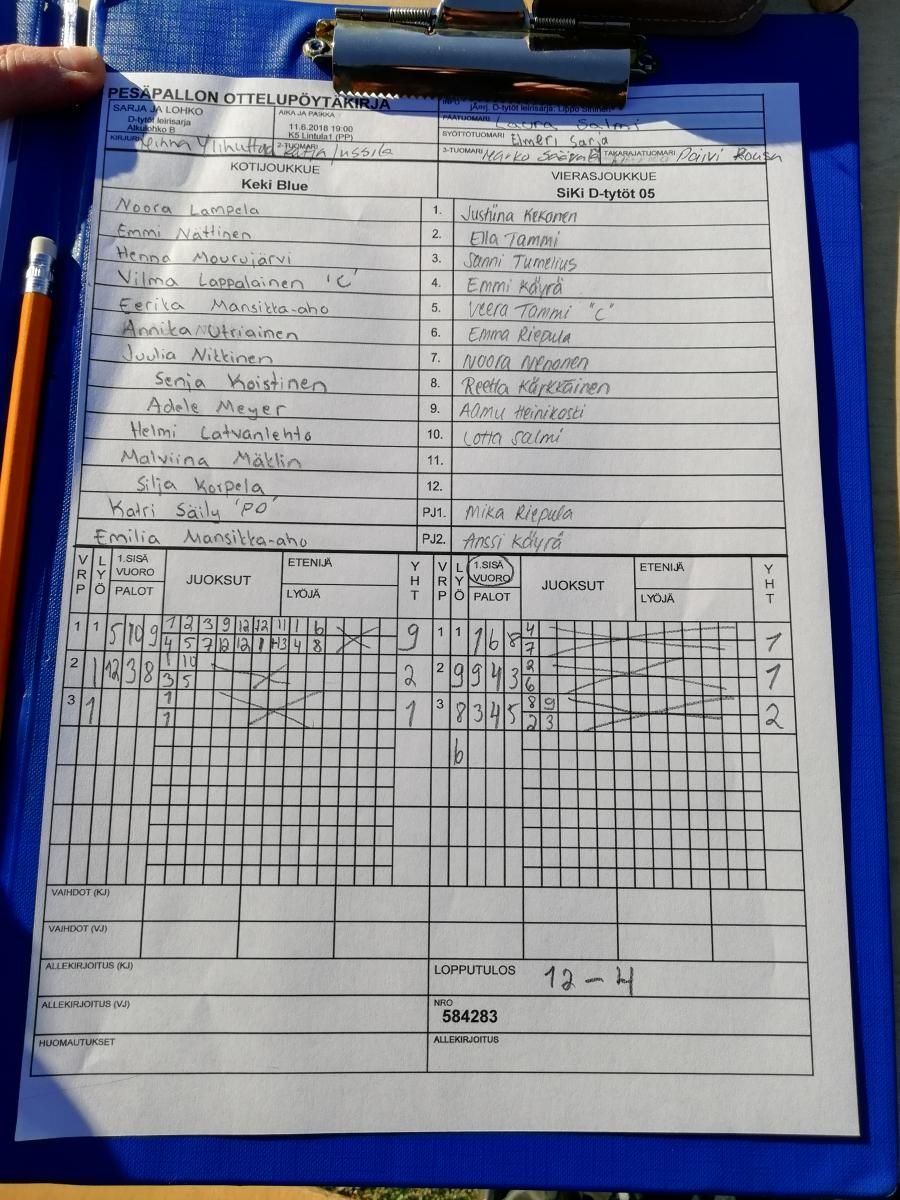 PESÄPALLON OTTELUPÖYTÄKIRJA
SARJA JA LOHKO
D-tytöt leirisarja
Alkulohko B
AIKA JA PAIKKA
11.6.2018 19:00
K5 Lintula1 (PP)
INFO
D-tytöt leirisarja, Lippo
PÄÄTUOMARI Laura Salmi
SYÖTTÖTUOMARI Elmeri Sarja
KIRJURI
2-TUOMARI Katja Jussila
3-TUOMARI Marko
TAKARAJATUOMARI Päivi
KOTIJOUKKUE
Keki Blue
VIERASJOUKKUE
SiKi D-tytöt 05
Noora Lampela 1. Justiina Kekonen
Emmi Nättinen 2. Ella Tammi
Henna Mourujärvi 3. Sanni Tumelius
Vilma Lappalainen 'C' 4. Emmi Käyrä
Eerika Mansikka-aho 5. Veera Tammi "C"
Annika Outriainen 6. Emma Riepula
Juulia Nikkinen 7. Noora Nenonen
Senja Koistinen 8. Reetta Kärkkäinen
Adele Meyer 9. Aamu Heinikoski
Helmi Latvanlehto 10. Lotta Salmi
Malviina Mäklin 11.
Silja Korpela 12.
Katri Säily 'PO' PJ1. Mika Riepula
Emilia Mansikka-aho PJ2. Anssi Käyrä
VRP LYÖ 1.SISÄ VUORO PALOT JUOKSUT ETENIJÄ LYÖJÄ YHT VRP LYÖ 1.SISÄ VUORO PALOT JUOKSUT ETENIJÄ LYÖJÄ YHT
1 1 5 10 9 1 2 3 9 12 12 11 1 6 9 1 1 1 6 8 4 1
4 5 7 12 12 1 H3 4 8 7
2 1 12 3 8 1 10 2 2 9 9 4 3 2 1
3 5 6
3 1 1 1 3 8 3 4 5 8 9 2
1 2 3
6
VAIHDOT (KJ)
VAIHDOT (VJ)
ALLEKIRJOITUS (KJ)
LOPPUTULOS 12 - 4
ALLEKIRJOITUS (VJ)
NRO
584283
HUOMAUTUKSET
ALLEKIRJOITUS